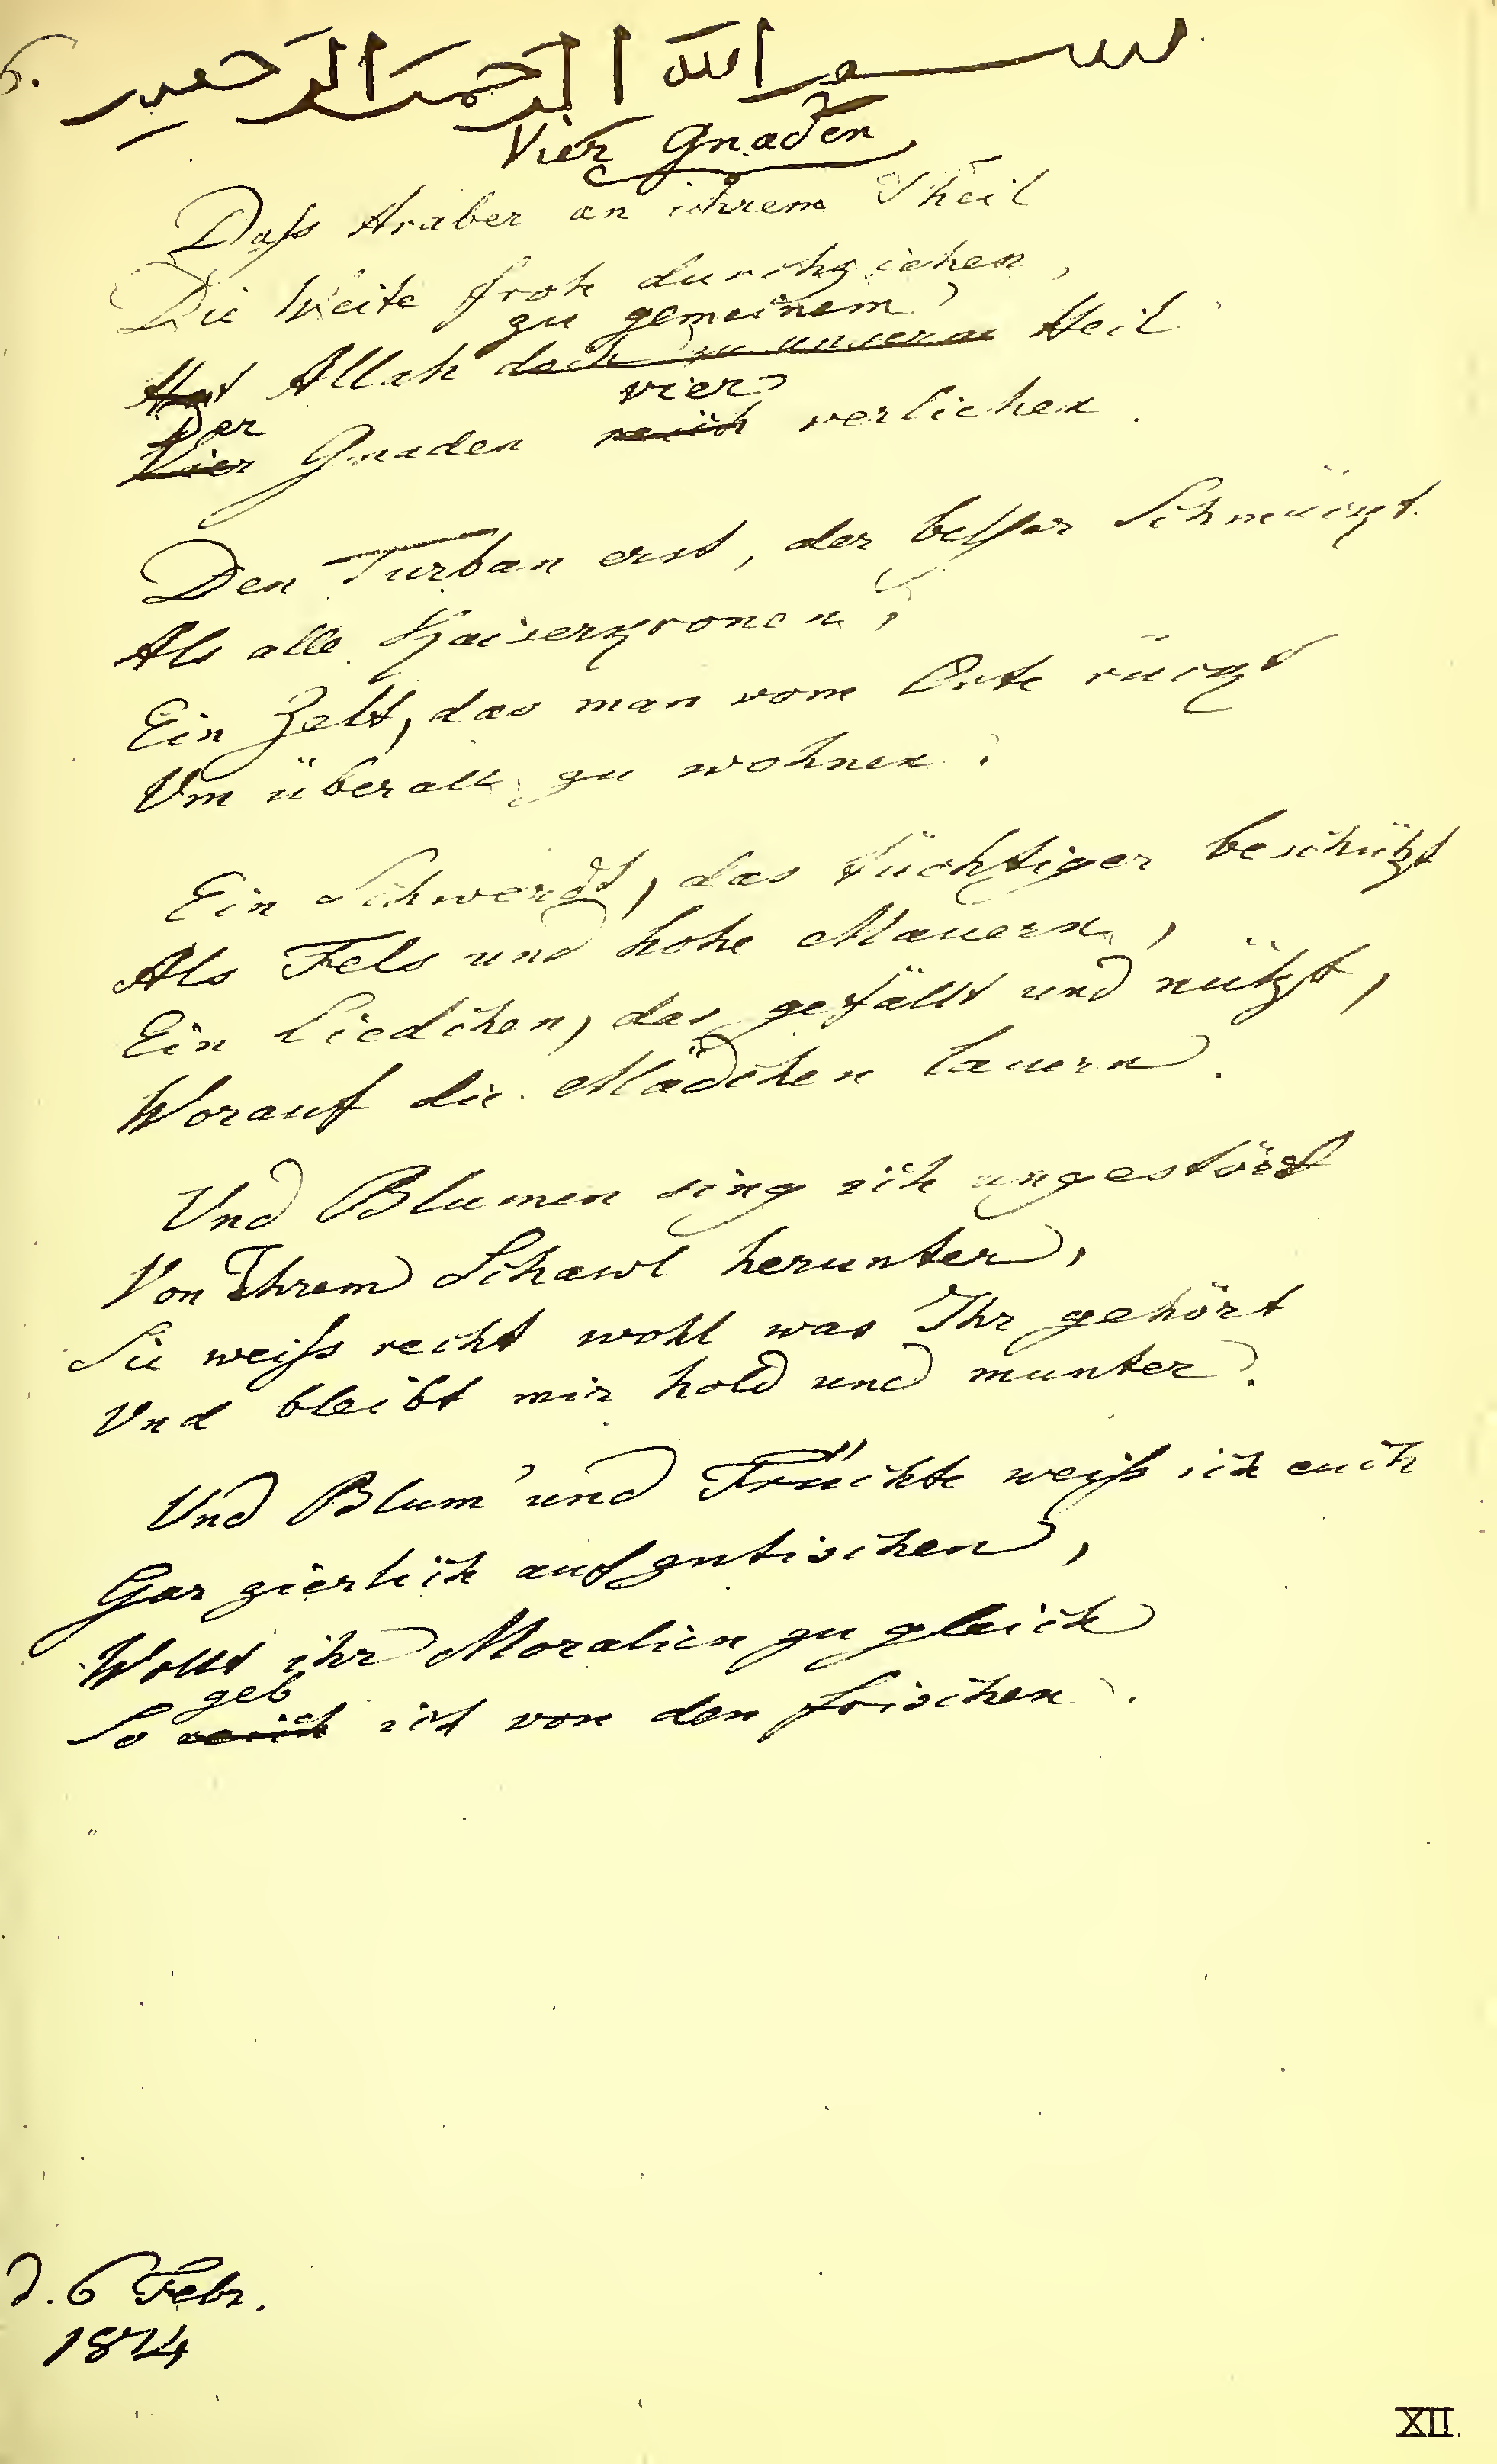 6.
بسم الله الرحمن الرحيم
Vier Gnaden
Daſs Araber an ihrem Theil
Die Weite froh durchziehen,
zu gemeinem
Hat Allah doch zu unserm Heil
Der vier
Vier Gnaden reich verliehen.
Den Turban erst, der beſser schmückt
Als alle Kaiserkronen,
Ein Zelt, das man vom Orte rückt
Um überall zu wohnen.
Ein Schwerdt, das tüchtiger beschützt
Als Fels und hohe Mauern,
Ein Liedchen, das gefällt und nützt,
Worauf die Mädchen lauern.
Und Blumen sing ich ungestört
Von Ihrem Schawl herunter,
Sie weiſs recht wohl was Ihr gehört
Und bleibt mir hold und munter.
Und Blum' und Früchte weiſs ich euch
Gar zierlich aufzutischen,
Wollt ihr Moralien zugleich
geb
So reich ich von den frischen.
d. 6 Febr.
1814
XII.